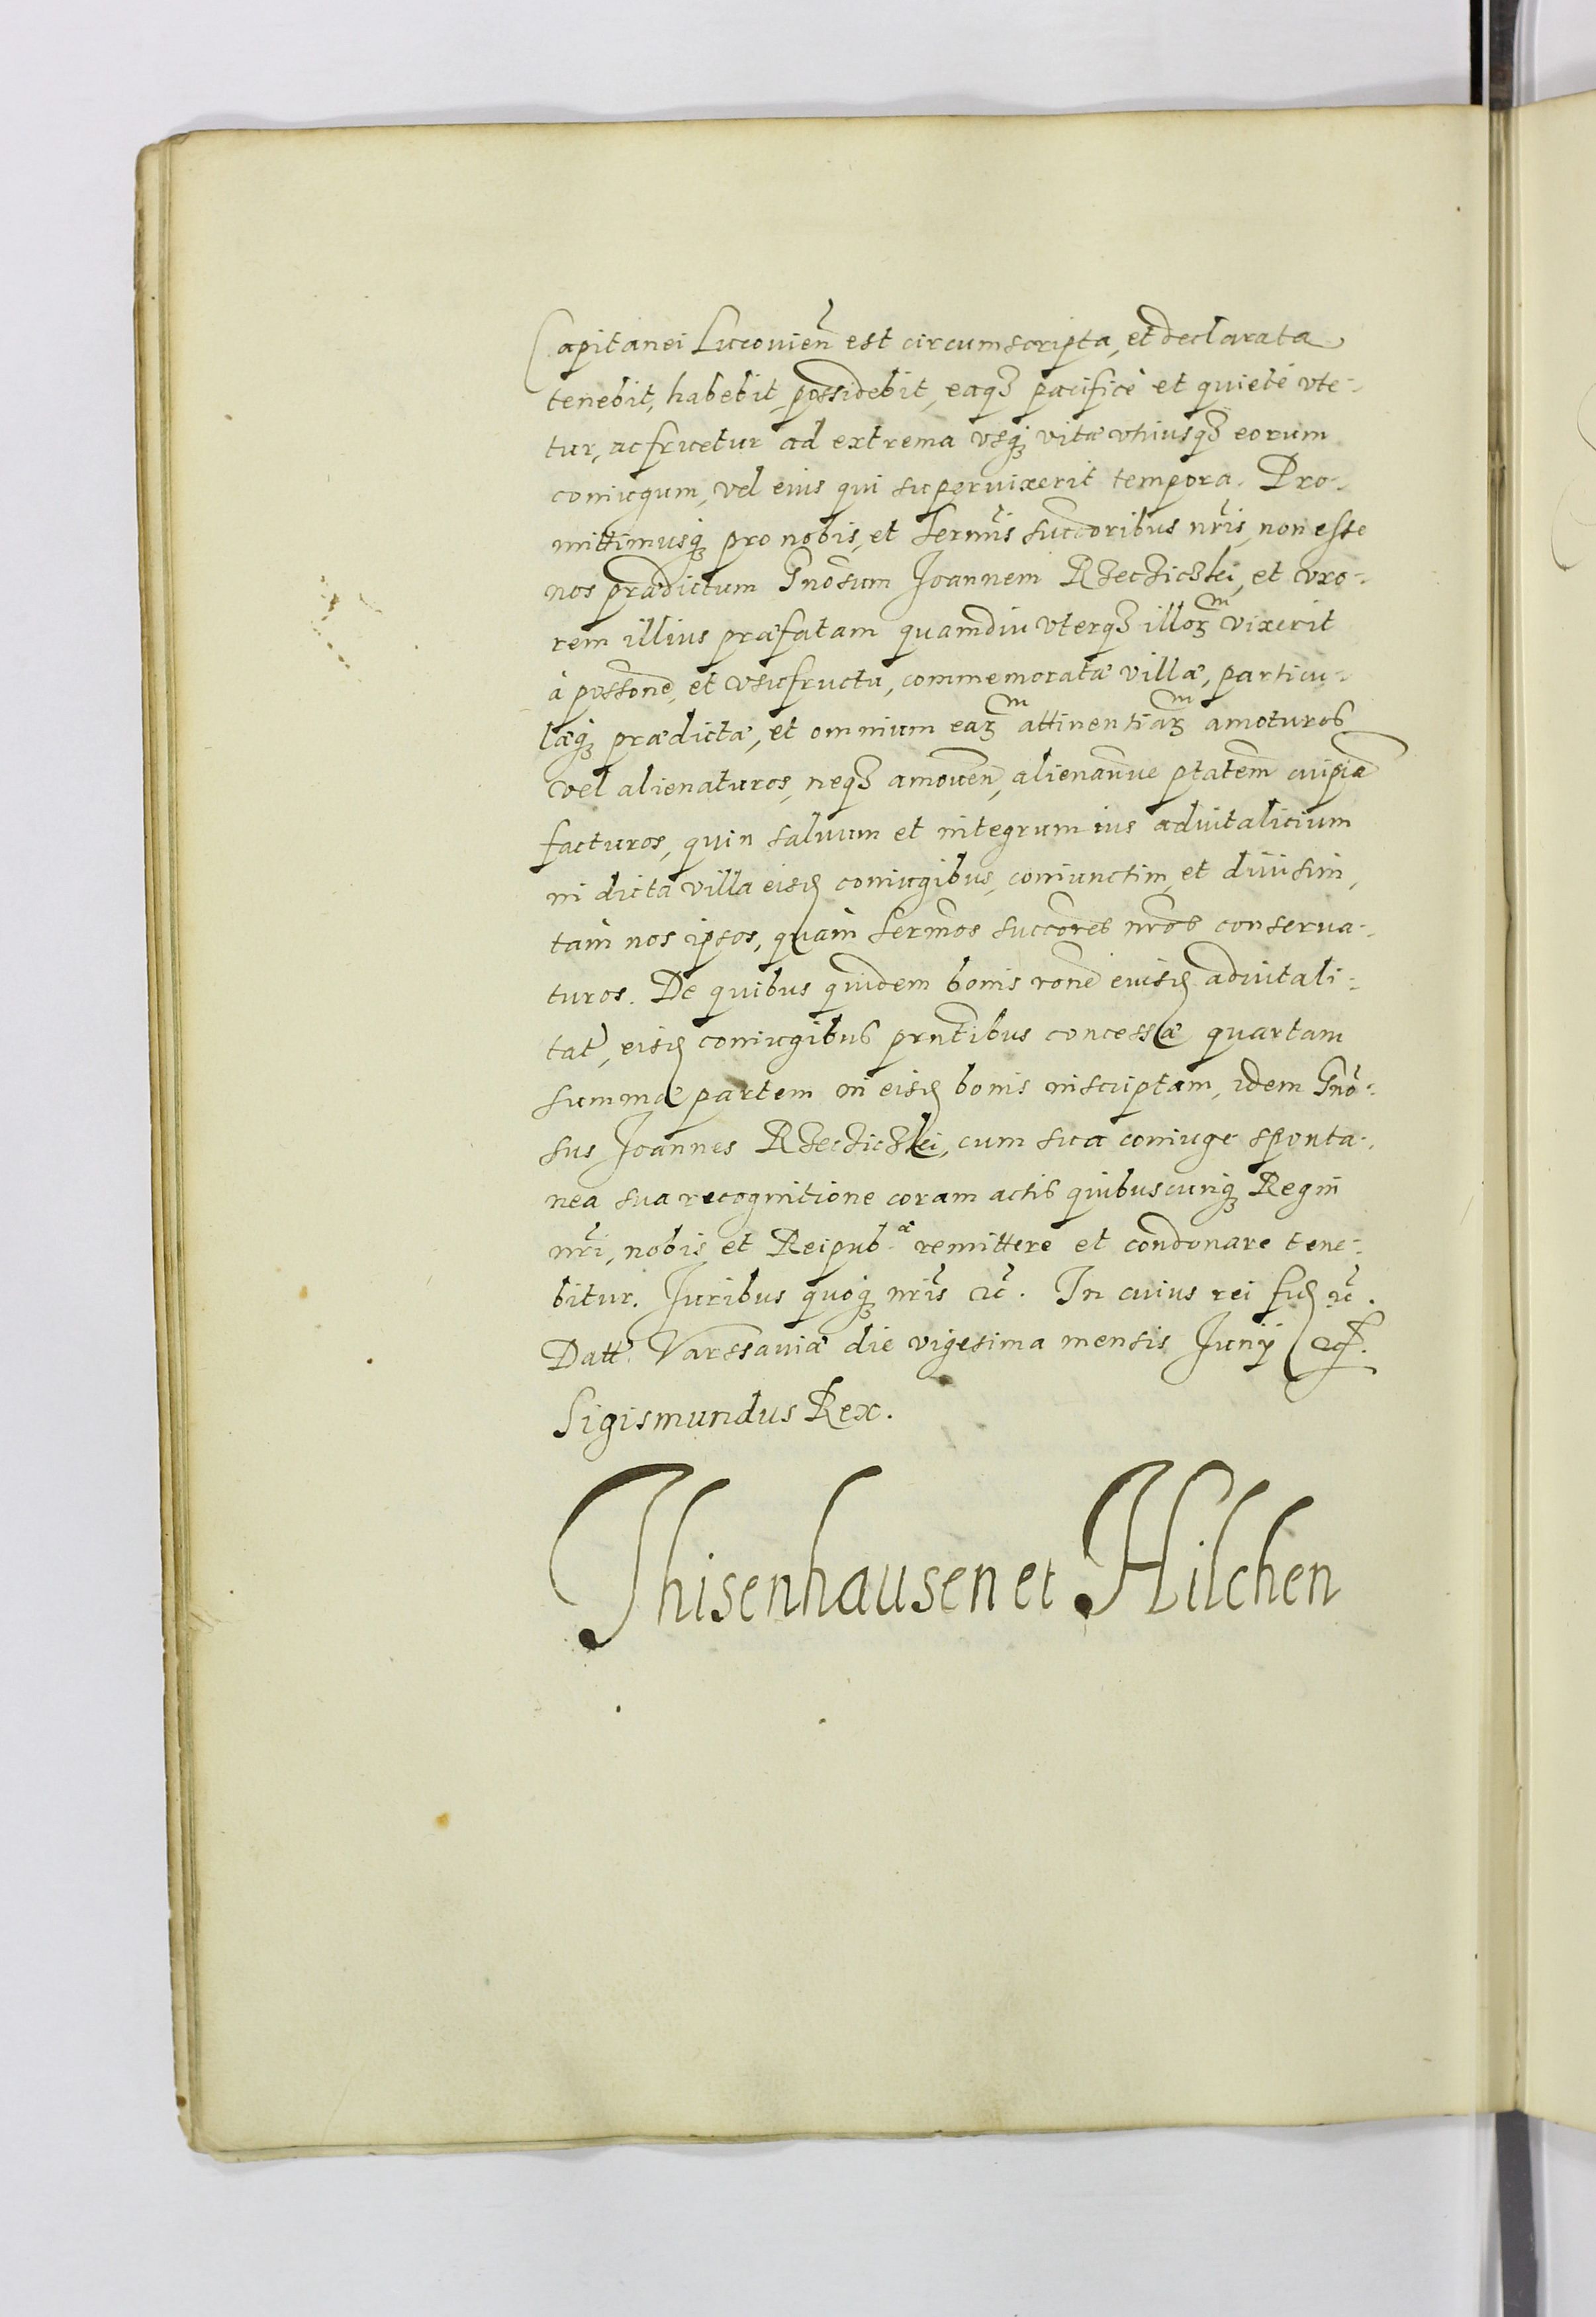 Capitanei Lucovień est circumscripta, et declarata
tenebit, habebit, possidebit, eaqȝ pacificè et quietè vte-
tur, ac fruetur ad extrema vsqȝ vitæ vtriusqȝ eorum
coniugum, vel eius qui superuixerit tempora. Pro-
mittimusqȝ pro nobis, et Sermis succoribus nris, non esse
nos prædictum Gnosum Joannem Rzecziczki, et vxo-
rem illius præfatam quamdiu vterqȝ illoꝝm vixerit
à possone, et vsufructu, commemoratæ villæ, particu-
læqȝ prædictæ, et omnium eaꝝm attinentiaꝝm amoturos
vel alienaturos, neqȝ amouen, alienanue ptatem cuipia
facturos, quin saluum et integrum ius aduitalicium
in dicta villa eisd coniugibus, coniunctim, et diuisim,
tàm nos ipsos, quàm Sermos succores nros conserua-
turos. De quibus quidem bonis rone eiusd aduitali-
tat, eisd coniugibus prntibus concessæ quartam
summæ partem in eisd bonis inscriptam, idem Gno-
sus Joannes Rzecziczki, cum sua coniuge sponta-
nea sua recognitione coram actis quibuscunqȝ Regni
nri, nobis et Reipub.æ remittere et condonare tene-
bitur. Juribus quoqȝ nris etc. In cuius rei fid etc.
Datt Varssauiæ die vigesima mensis Junij
Sigismundus Rex.
Thisenhausen et Hilchen